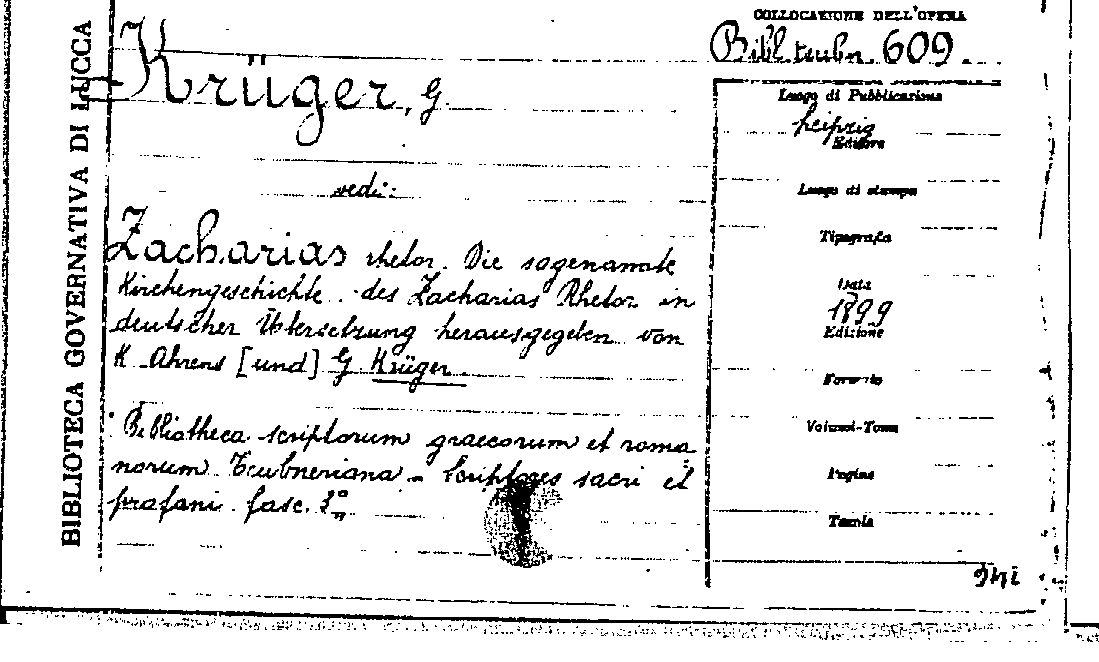 BIBLIOTECA GOVERNATIVA DI LUCCA
COLLOCAZIONE DELL'OPERA
Bibl. teubn. 609.
Krüger, G.
vedi:
Zacharias rhetor. Die sogenannte
Kirchengeschichte des Zacharias Rhetor in
deutscher Übersetzung herausgegeben von
K. Ahrens [und] G. Krüger.
Bibliotheca scriptorum graecorum et roma
norum Teubneriana - Scriptores sacri et
profani. fasc. 3º
Luogo di Pubblicazione
Leipzig
Editore
Luogo di stampa
Tipografia
Data
1899
Edizione
Formato
Volumi-Tomi
Pagine
Tavole